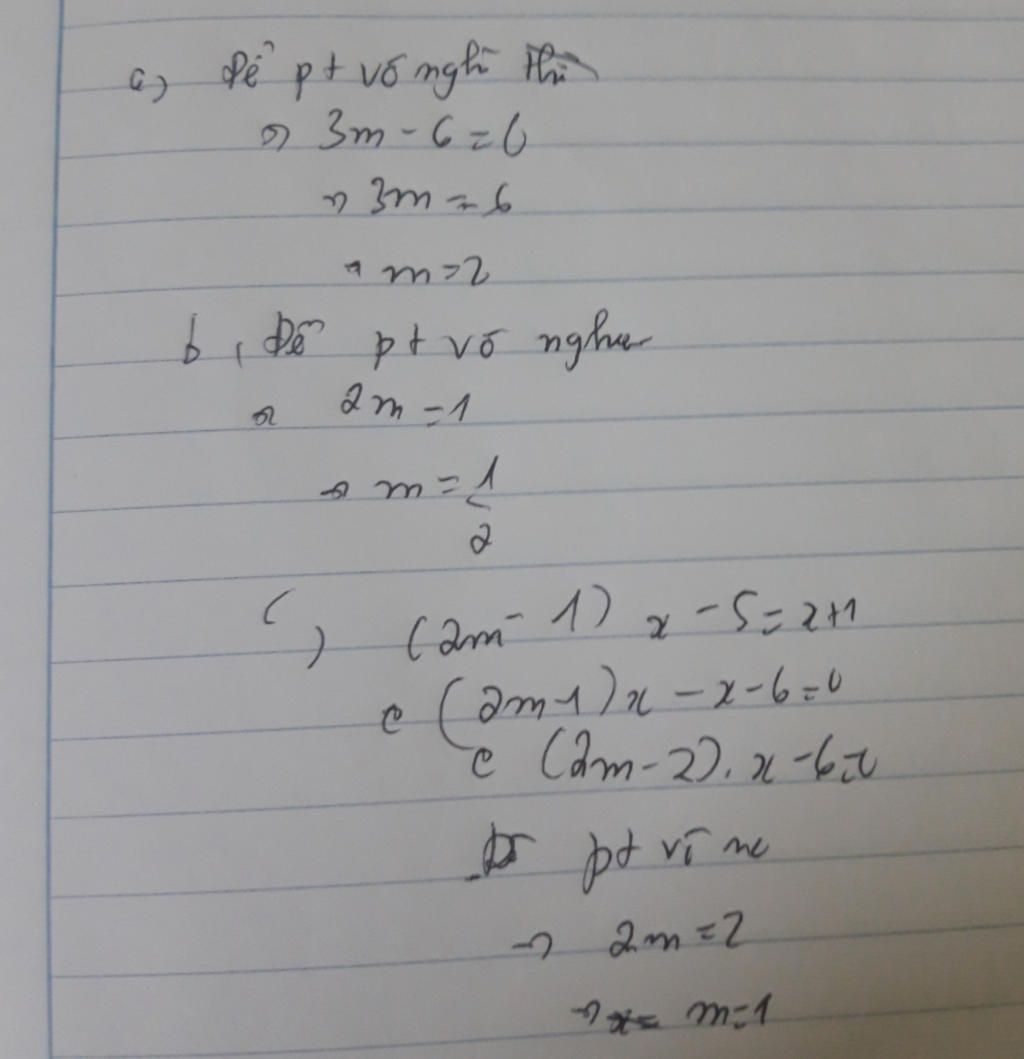 a) Để pt vô ngh thì
=> 3m - 6 = 0
=> 3m = 6
=> m = 2
b, Để pt vô nghiệm
=> 2m = 1
=> m = 1/2
c) (2m - 1) x - 5 = x + 1
(2m - 1)x - x - 6 = 0
(2m - 2). x - 6 = 0
pt vô
=> 2m = 2
=> m = 1